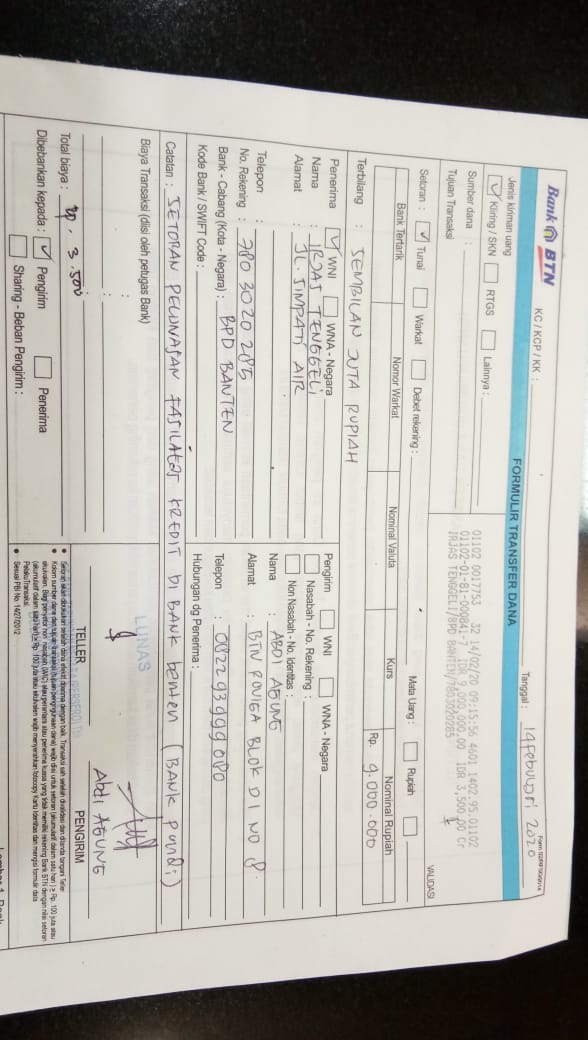 Bank BTN
KC / KCP / KK :
Tanggal : 14 FEBUUDRI 2020
FORMULIR TRANSFER DANA
Jenis kiriman uang
Kliring / SKN RTGS Lainnya :
Sumber dana :
Tujuan Transaksi
01102 0017753 32 14/02/20 09:15:56 4601 1402 95 01102
01102-01-81-000841-7 IDR 9,000,000.00 IDR 3,500.00 Cr
IRJAS TENGGELI/BPD BANTEN/7803020285
VALIDASI
Setoran : Tunai Warkat Debet rekening : Mata Uang : Rupiah
Bank Tertarik Nomor Warkat Nominal Valuta Kurs Nominal Rupiah
Rp. 9.000.000
Terbilang : SEMBILAN JUTA RUPIAH
Penerima WNI WNA - Negara
Nama : IRJAS TENGGELI
Alamat : JL. SIMPATI AIR
Telepon :
No. Rekening : 780 3020 285
Bank - Cabang (Kota - Negara) : BPD BANTEN
Kode Bank / SWIFT Code :
Pengirim WNI WNA - Negara
Nasabah - No. Rekening :
Non Nasabah - No. Identitas :
Nama : ABDI AGUNG
Alamat : BTN PONEGA BLOK D1 NO 8.
Telepon : 082293999080
Hubungan dg Penerima :
Catatan : SETORAN PELUNASAN FASILATAS KREDIT DI BANK benten (BANK pundi)
Biaya Transaksi (diisi oleh petugas Bank)
:
:
Total biaya : Rp. 3.500
Dibebankan kepada : Pengirim Penerima
Sharing - Beban Pengirim :
LUNAS
TELLER
Abdi AGUNG
PENGIRIM
Sesuai PBI No. 14/27/2012